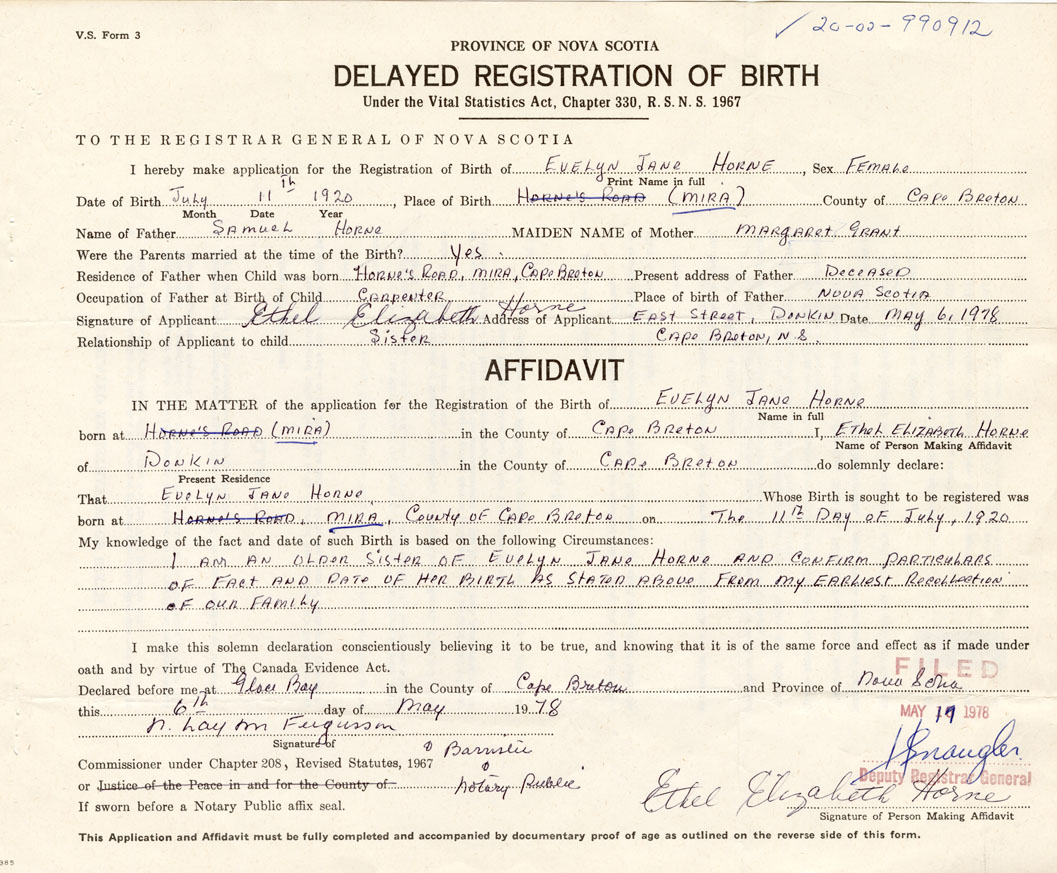 V.S. Form 3
✓ 20-02-990912
PROVINCE OF NOVA SCOTIA
DELAYED REGISTRATION OF BIRTH
Under the Vital Statistics Act, Chapter 330, R.S.N.S. 1967
TO THE REGISTRAR GENERAL OF NOVA SCOTIA
I hereby make application for the Registration of Birth of EVELYN JANE HORNE, Sex FEMALE
Print Name in full
Date of Birth July 11th 1920, Place of Birth HORNE'S ROAD (MIRA) County of CAPE BRETON
Month Date Year
Name of Father SAMUEL HORNE MAIDEN NAME of Mother MARGARET GRANT
Were the Parents married at the time of the Birth? Yes.
Residence of Father when Child was born HORNE'S ROAD, MIRA, CAPE BRETON Present address of Father DECEASED
Occupation of Father at Birth of Child CARPENTER Place of birth of Father NOVA SCOTIA
Signature of Applicant Ethel Elizabeth Horne Address of Applicant EAST STREET, DONKIN Date MAY 6, 1978
Relationship of Applicant to child SISTER CAPE BRETON, N.S.
AFFIDAVIT
IN THE MATTER of the application for the Registration of the Birth of EVELYN JANE HORNE
Name in full
born at HORNE'S ROAD (MIRA) in the County of CAPE BRETON I, ETHEL ELIZABETH HORNE
Name of Person Making Affidavit
of DONKIN in the County of CAPE BRETON do solemnly declare:
Present Residence
That EVELYN JANE HORNE Whose Birth is sought to be registered was
born at HORNE'S ROAD, MIRA, COUNTY OF CAPE BRETON on The 11th DAY OF July, 1920
My knowledge of the fact and date of such Birth is based on the following Circumstances:
I AM AN OLDER SISTER OF EVELYN JANE HORNE AND CONFIRM PARTICULARS
OF FACT AND DATE OF HER BIRTH AS STATED ABOVE FROM MY EARLIEST RECOLLECTION
OF OUR FAMILY
I make this solemn declaration conscientiously believing it to be true, and knowing that it is of the same force and effect as if made under
oath and by virtue of The Canada Evidence Act.
FILED
Declared before me at Glace Bay in the County of Cape Breton and Province of Nova Scotia
this 6th day of May 1978
MAY 19 1978
Fergusson
Signature of
Barrister
Commissioner under Chapter 208, Revised Statutes, 1967
Deputy Registrar General
or Justice of the Peace in and for the County of Notary Public
Ethel Elizabeth Horne
If sworn before a Notary Public affix seal.
Signature of Person Making Affidavit
This Application and Affidavit must be fully completed and accompanied by documentary proof of age as outlined on the reverse side of this form.